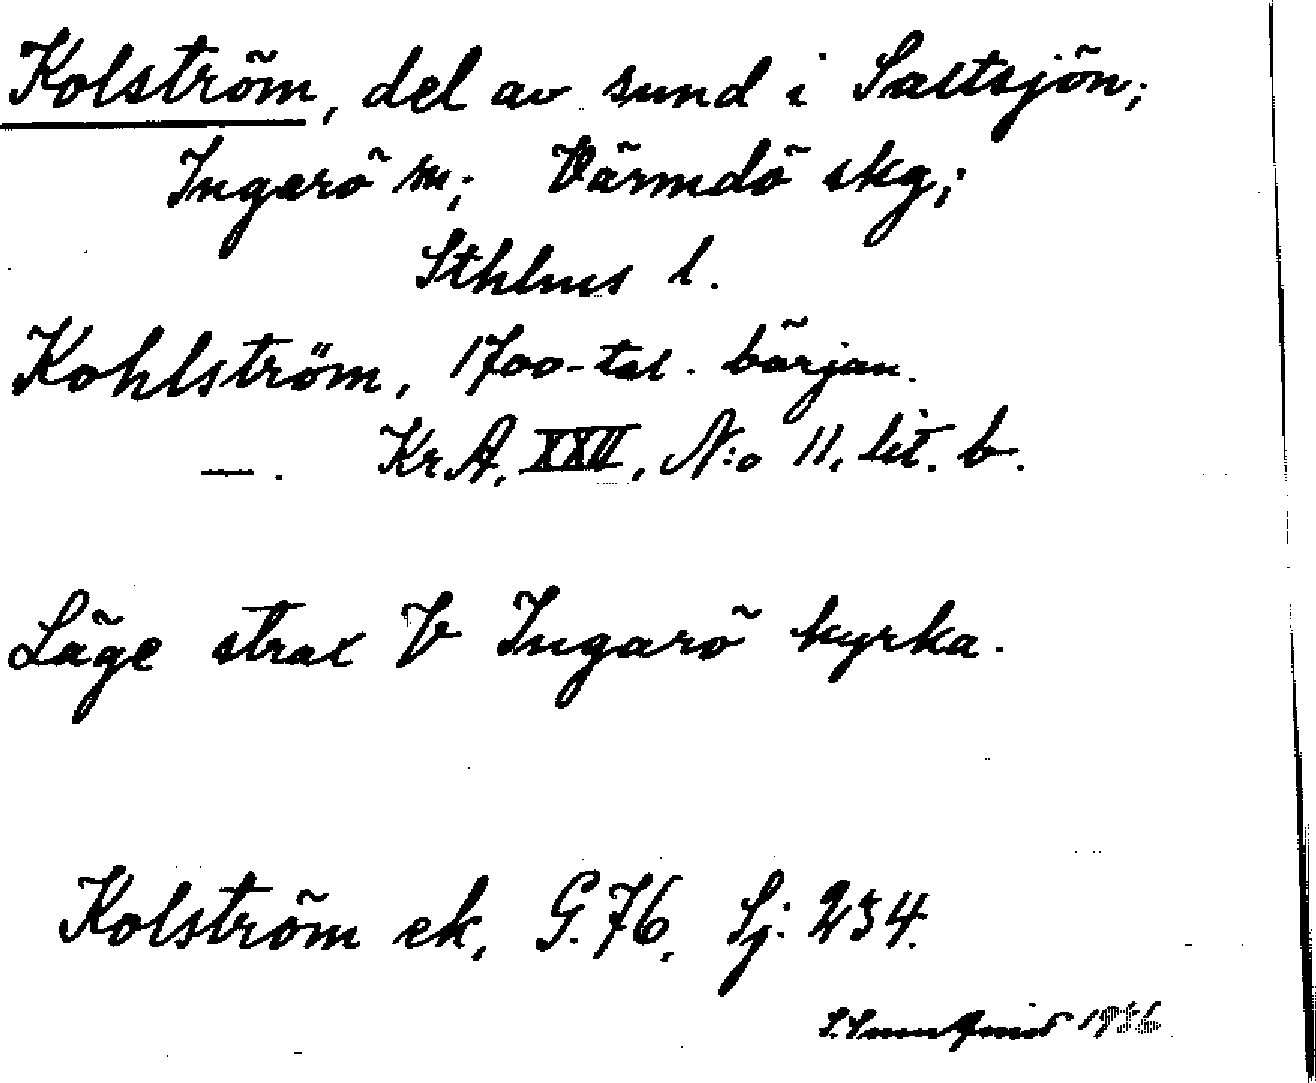 Kolström, del av sund i Saltsjön;
Ingarö sn; Värmdö skg;
Sthlms l.
Kohlström, 1700-tal. början.
—. Kr.A. XXII, N:o 11. lit. b.
Läge strax V Ingarö kyrka.
Kolström ek. G.76. Sj: 234.
1936